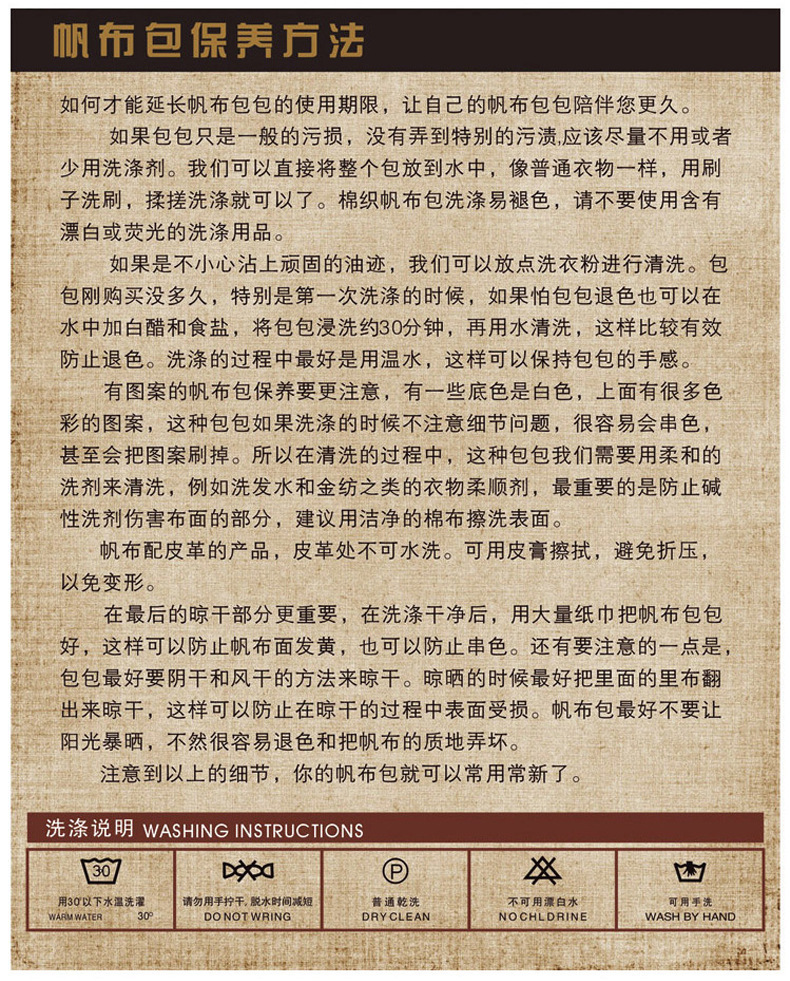 帆布包保养方法
如何才能延长帆布包包的使用期限，让自己的帆布包包陪伴您更久。
如果包包只是一般的污损，没有弄到特别的污渍,应该尽量不用或者
少用洗涤剂。我们可以直接将整个包放到水中，像普通衣物一样，用刷
子洗刷，揉搓洗涤就可以了。棉织帆布包洗涤易褪色，请不要使用含有
漂白或荧光的洗涤用品。
如果是不小心沾上顽固的油迹，我们可以放点洗衣粉进行清洗。包
包刚购买没多久，特别是第一次洗涤的时候，如果怕包包退色也可以在
水中加白醋和食盐，将包包浸洗约30分钟，再用水清洗，这样比较有效
防止退色。洗涤的过程中最好是用温水，这样可以保持包包的手感。
有图案的帆布包保养要更注意，有一些底色是白色，上面有很多色
彩的图案，这种包包如果洗涤的时候不注意细节问题，很容易会串色，
甚至会把图案刷掉。所以在清洗的过程中，这种包包我们需要用柔和的
洗剂来清洗，例如洗发水和金纺之类的衣物柔顺剂，最重要的是防止碱
性洗剂伤害布面的部分，建议用洁净的棉布擦洗表面。
帆布配皮革的产品，皮革处不可水洗。可用皮膏擦拭，避免折压，
以免变形。
在最后的晾干部分更重要，在洗涤干净后，用大量纸巾把帆布包包
好，这样可以防止帆布面发黄，也可以防止串色。还有要注意的一点是，
包包最好要阴干和风干的方法来晾干。晾晒的时候最好把里面的里布翻
出来晾干，这样可以防止在晾干的过程中表面受损。帆布包最好不要让
阳光暴晒，不然很容易退色和把帆布的质地弄坏。
注意到以上的细节，你的帆布包就可以常用常新了。
洗涤说明 WASHING INSTRUCTIONS
30
用30°以下水温洗濯
WARM WATER 30°
请勿用手拧干，脱水时间减短
DO NOT WRING
P
普通乾洗
DRY CLEAN
不可用漂白水
NO CHLDRINE
可用手洗
WASH BY HAND